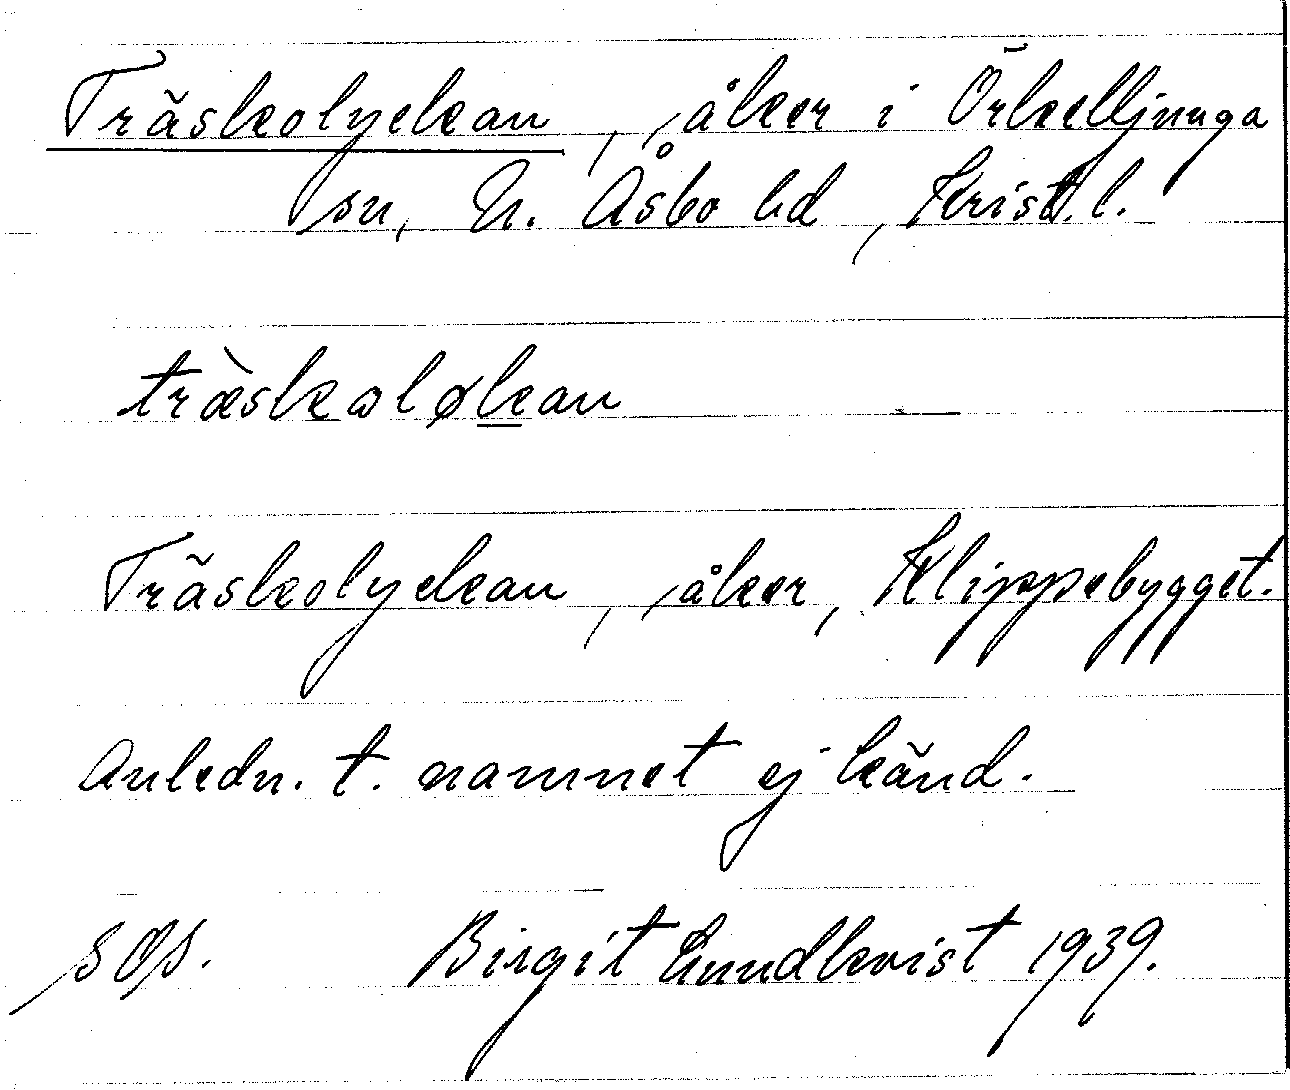 Träskolyckan, åker i Örkelljunga
sn, N. Åsbo hd, Krist. l.
træ̀skoløkan
Träskolyckan, åker, Klippebygget.
Anledn. t. namnet ej känd.
Birgit Lundkvist 1939.